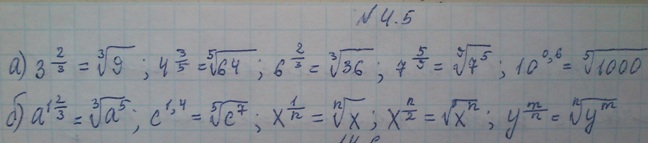 № 4.5
а) 3^(2/3) = ∛9 ; 4^(3/5) = ⁵√64 ; 6^(2/3) = ∛36 ; 7^(5/3) = ∛7⁵ ; 10^(0,6) = ⁵√1000
б) a^(1 2/3) = ∛a⁵ ; c^(1,4) = ⁵√c⁷ ; x^(1/n) = ⁿ√x ; x^(n/2) = √xⁿ ; y^(m/n) = ⁿ√y^m